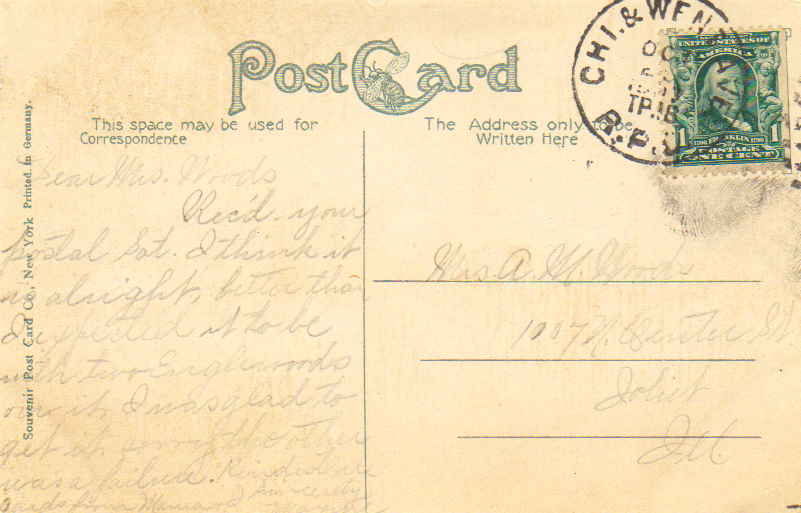 Post Card
This space may be used for
Correspondence
The Address only to be
Written Here
CHI. & WEN
OC
TR.16
R.P.
UNITED STATES OF
AMERICA
1 FRANKLIN 1
POSTAGE
ONE CENT
Souvenir Post Card Co., New York Printed in Germany.
Dear Mrs. Woods
Rec'd your
postal Sat. I think it
alright, better than
I expected it to be
with two Englewoods
on it. I was glad to
get it sorry the other
was a failure. Kindest
cards from Mama and Sincerely
Mrs. A. Woods
1007 N. Center St.
Joliet
Ill